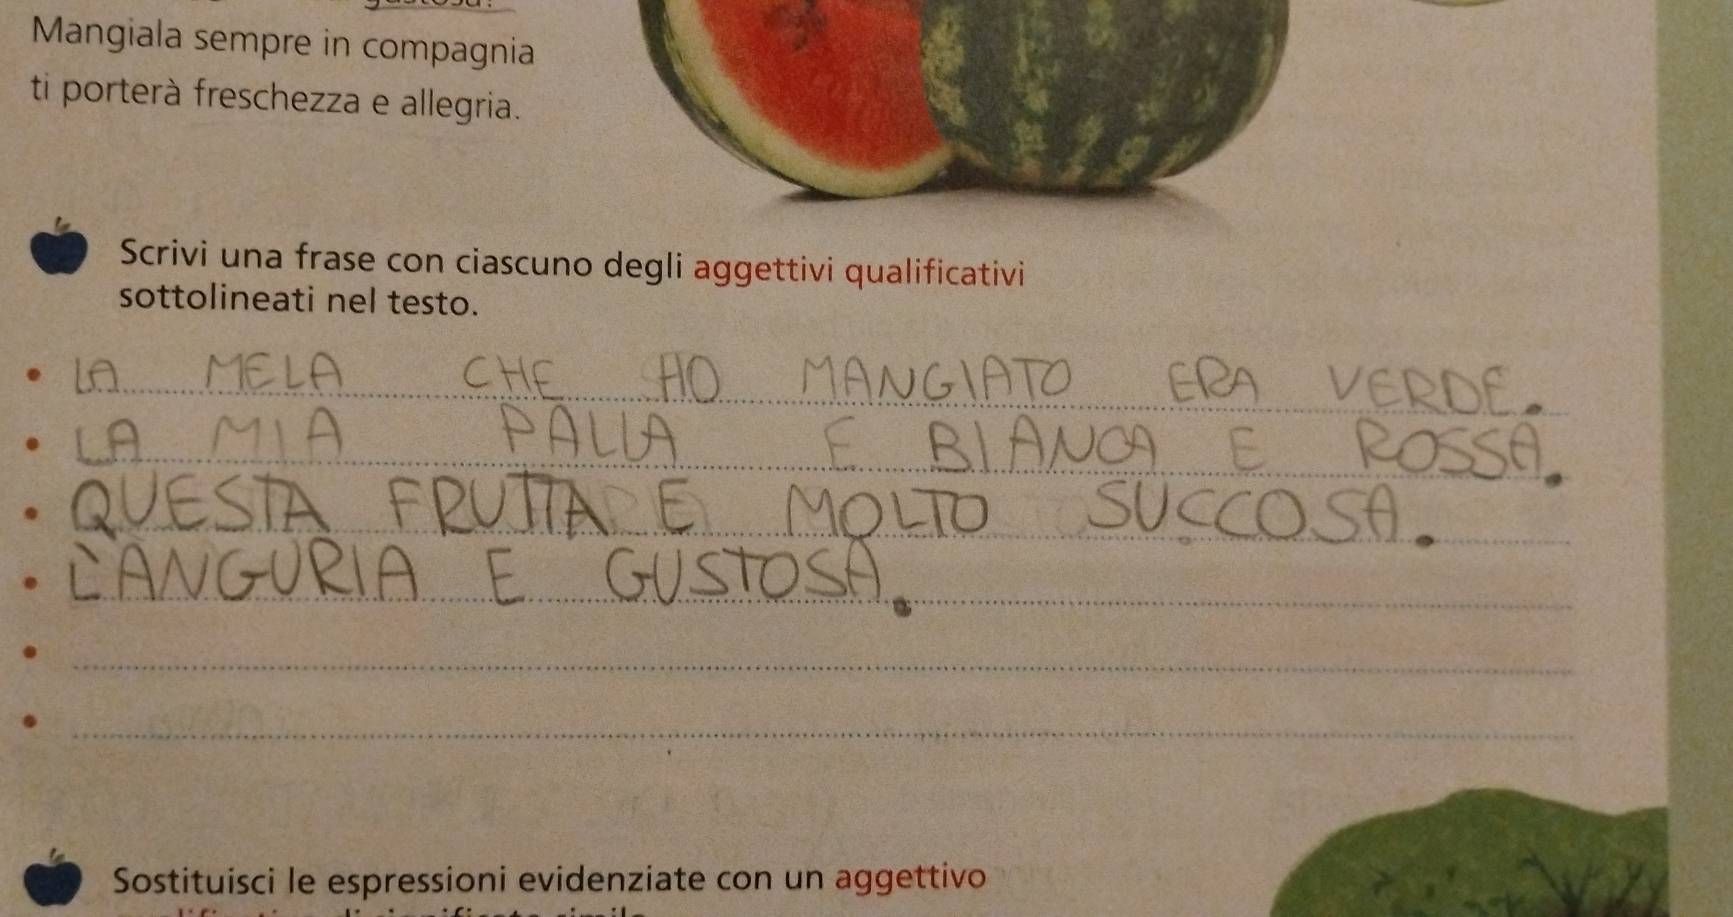 Mangiala sempre in compagnia
ti porterà freschezza e allegria.
Scrivi una frase con ciascuno degli aggettivi qualificativi
sottolineati nel testo.
• LA MELA CHE HO MANGIATO ERA VERDE.
• LA MIA PALLA E BIANCA E ROSSA.
• QUESTA FRUTTA E MOLTO SUCCOSA.
• L'ANGURIA E GUSTOSA.
•
•
Sostituisci le espressioni evidenziate con un aggettivo